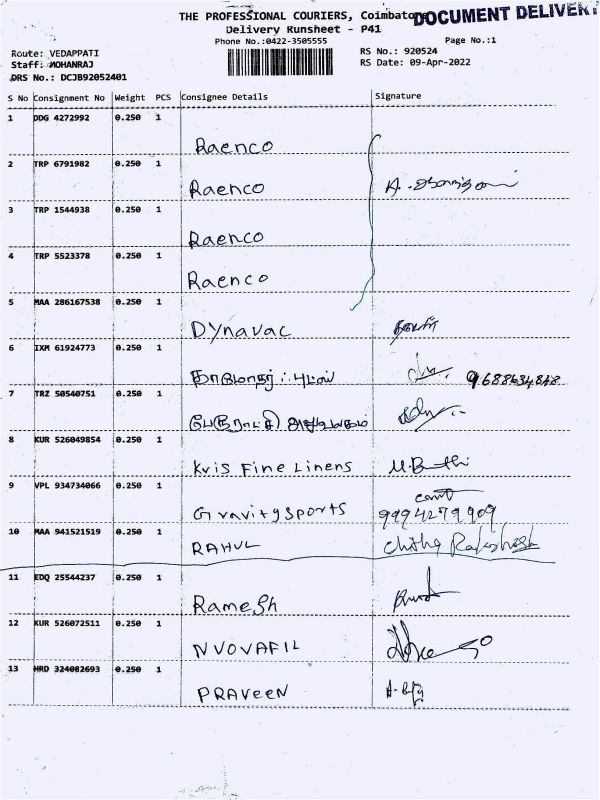 THE PROFESSIONAL COURIERS, Coimbatore
DOCUMENT DELIVERY
Delivery Runsheet - P41
Phone No.:0422-3505555
Page No.:1
Route: VEDAPPATI
RS No.: 920524
Staff: MOHANRAJ
RS Date: 09-Apr-2022
DRS No.: DCJB92052401
S No Consignment No Weight PCS Consignee Details Signature
1 DDG 4272992 0.250 1
Raenco
2 TRP 6791982 0.250 1
Raenco
3 TRP 1544938 0.250 1
Raenco
4 TRP 5523378 0.250 1
Raenco
5 MAA 286167538 0.250 1
Dynavac
6 IXM 61924773 0.250 1
9688634848
7 TRZ 50540751 0.250 1
பேரூராட்சி அலுவலகம்
8 KUR 526049854 0.250 1
Kvis Fine Linens
9 VPL 934734066 0.250 1
Gravity Sports 9994279909
10 MAA 941521519 0.250 1
RAHUL
11 EDQ 25544237 0.250 1
Ramesh
12 KUR 526072511 0.250 1
NVOVAFIL
13 HRD 324082693 0.250 1
PRAVEEN